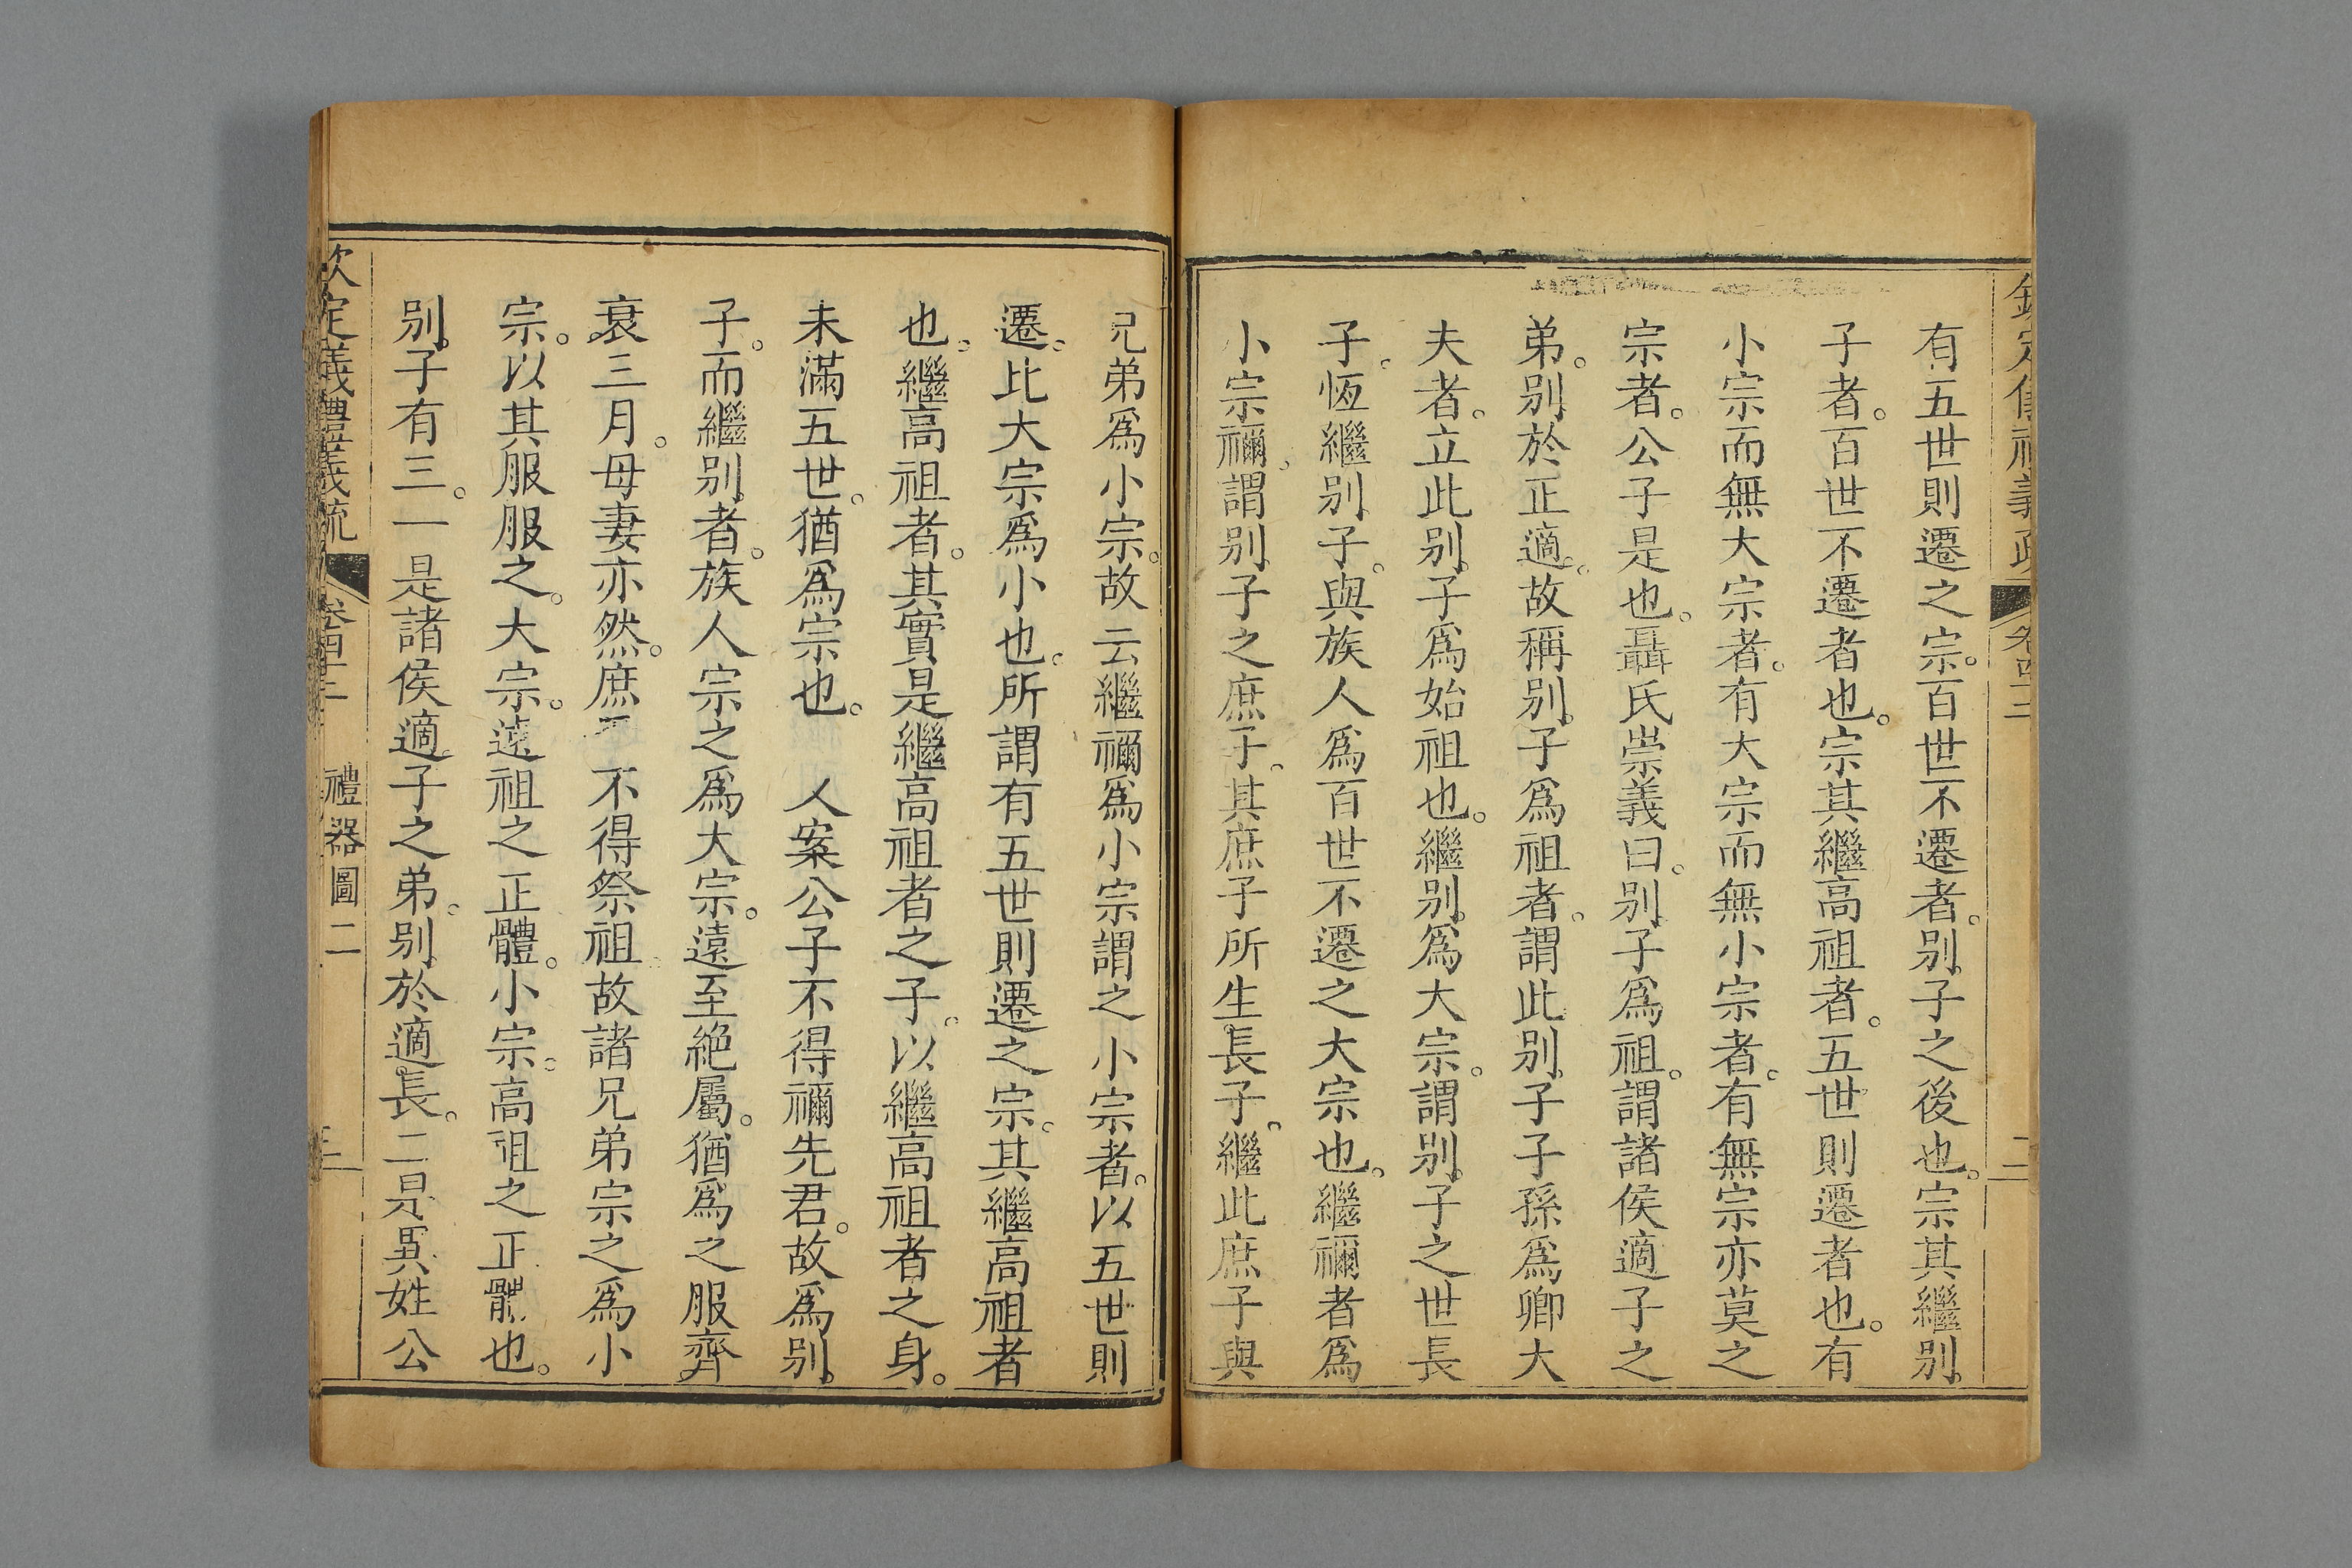 有五世則遷之宗。百世不遷者。别子之後也。宗其繼别
子者。百世不遷者也。宗其繼高祖者。五世則遷者也。有
小宗而無大宗者。有大宗而無小宗者。有無宗亦莫之
宗者。公子是也。聶氏崇義曰。别子爲祖。謂諸侯適子之
弟。别於正適。故稱别子爲祖者。謂此别子子孫爲卿大
夫者。立此别子爲始祖也。繼别爲大宗。謂别子之世長
子。恆繼别子。與族人爲百世不遷之大宗也。繼禰者爲
小宗禰。謂别子之庶子。其庶子所生長子。繼此庶子與
兄弟爲小宗。故云繼禰爲小宗謂之小宗者。以五世則
遷。比大宗爲小也。所謂有五世則遷之宗。其繼高祖者
也。繼高祖者。其實是繼高祖者之子。以繼高祖者之身。
未滿五世。猶爲宗也。 人案公子不得禰先君。故爲别
子。而繼别者。族人宗之爲大宗。遠至絶屬。猶爲之服齊
衰三月。母妻亦然。庶 不得祭祖故諸兄弟宗之爲小
宗。以其服服之。大宗。遠祖之正體。小宗。高祖之正體也。
别子有三。一是諸侯適子之弟。别於適長。二是異姓公
欽定儀禮義疏
禮器圖二